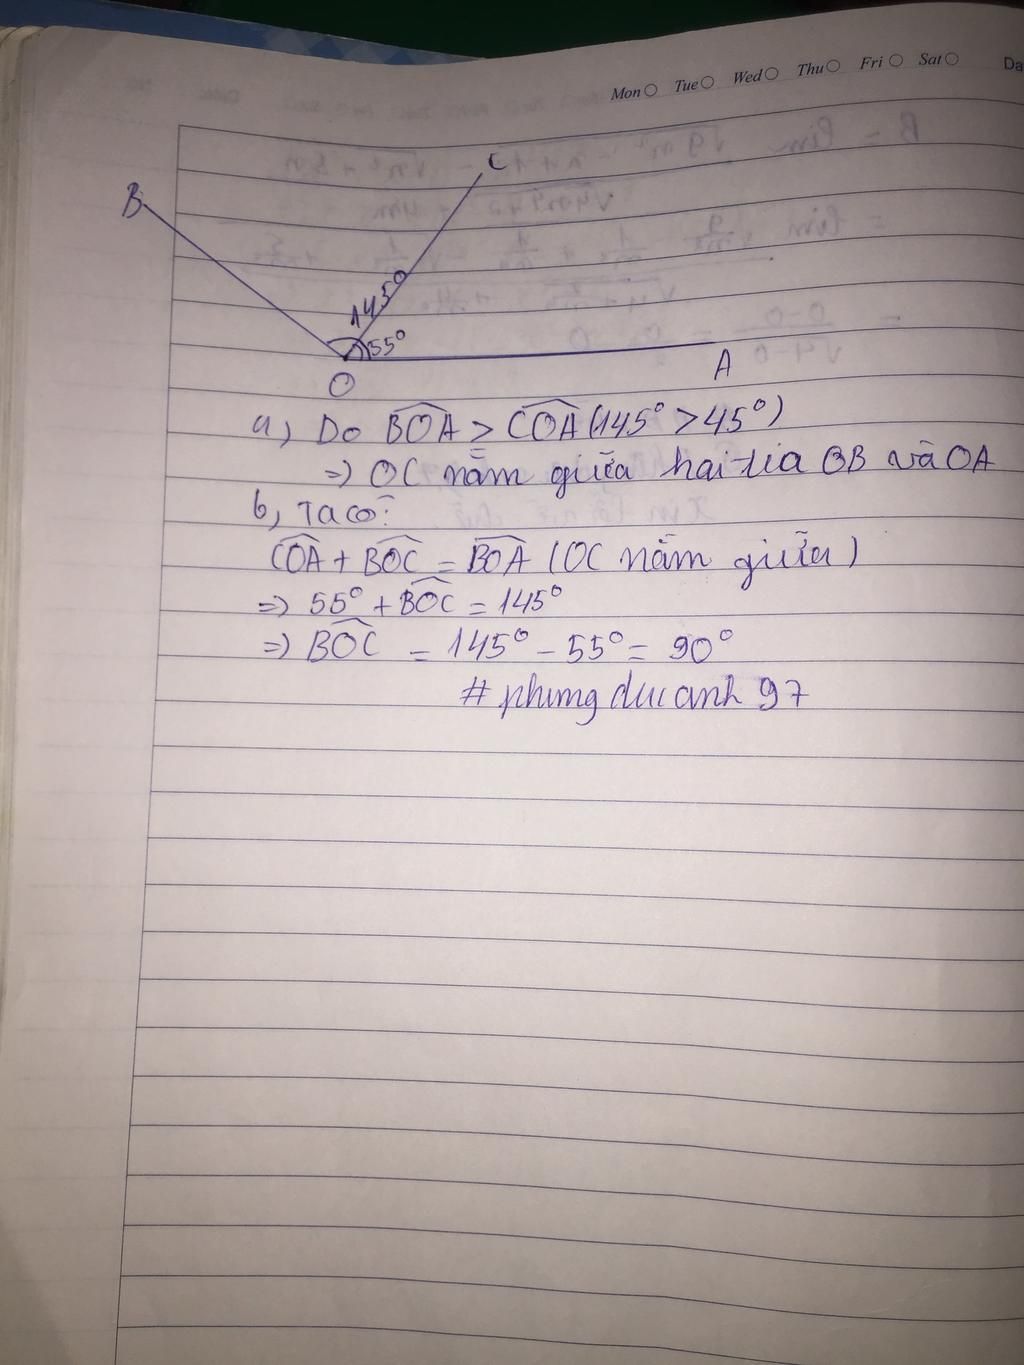 Mon Tue Wed Thu Fri Sat Da
B
C
145°
55°
O
A
a, Do BOA > COA (145° > 45°)
=> OC nằm giữa hai tia OB và OA
b, Ta có:
COA + BOC = BOA (OC nằm giữa)
=> 55° + BOC = 145°
=> BOC = 145° - 55° = 90°
# phung duc anh 97